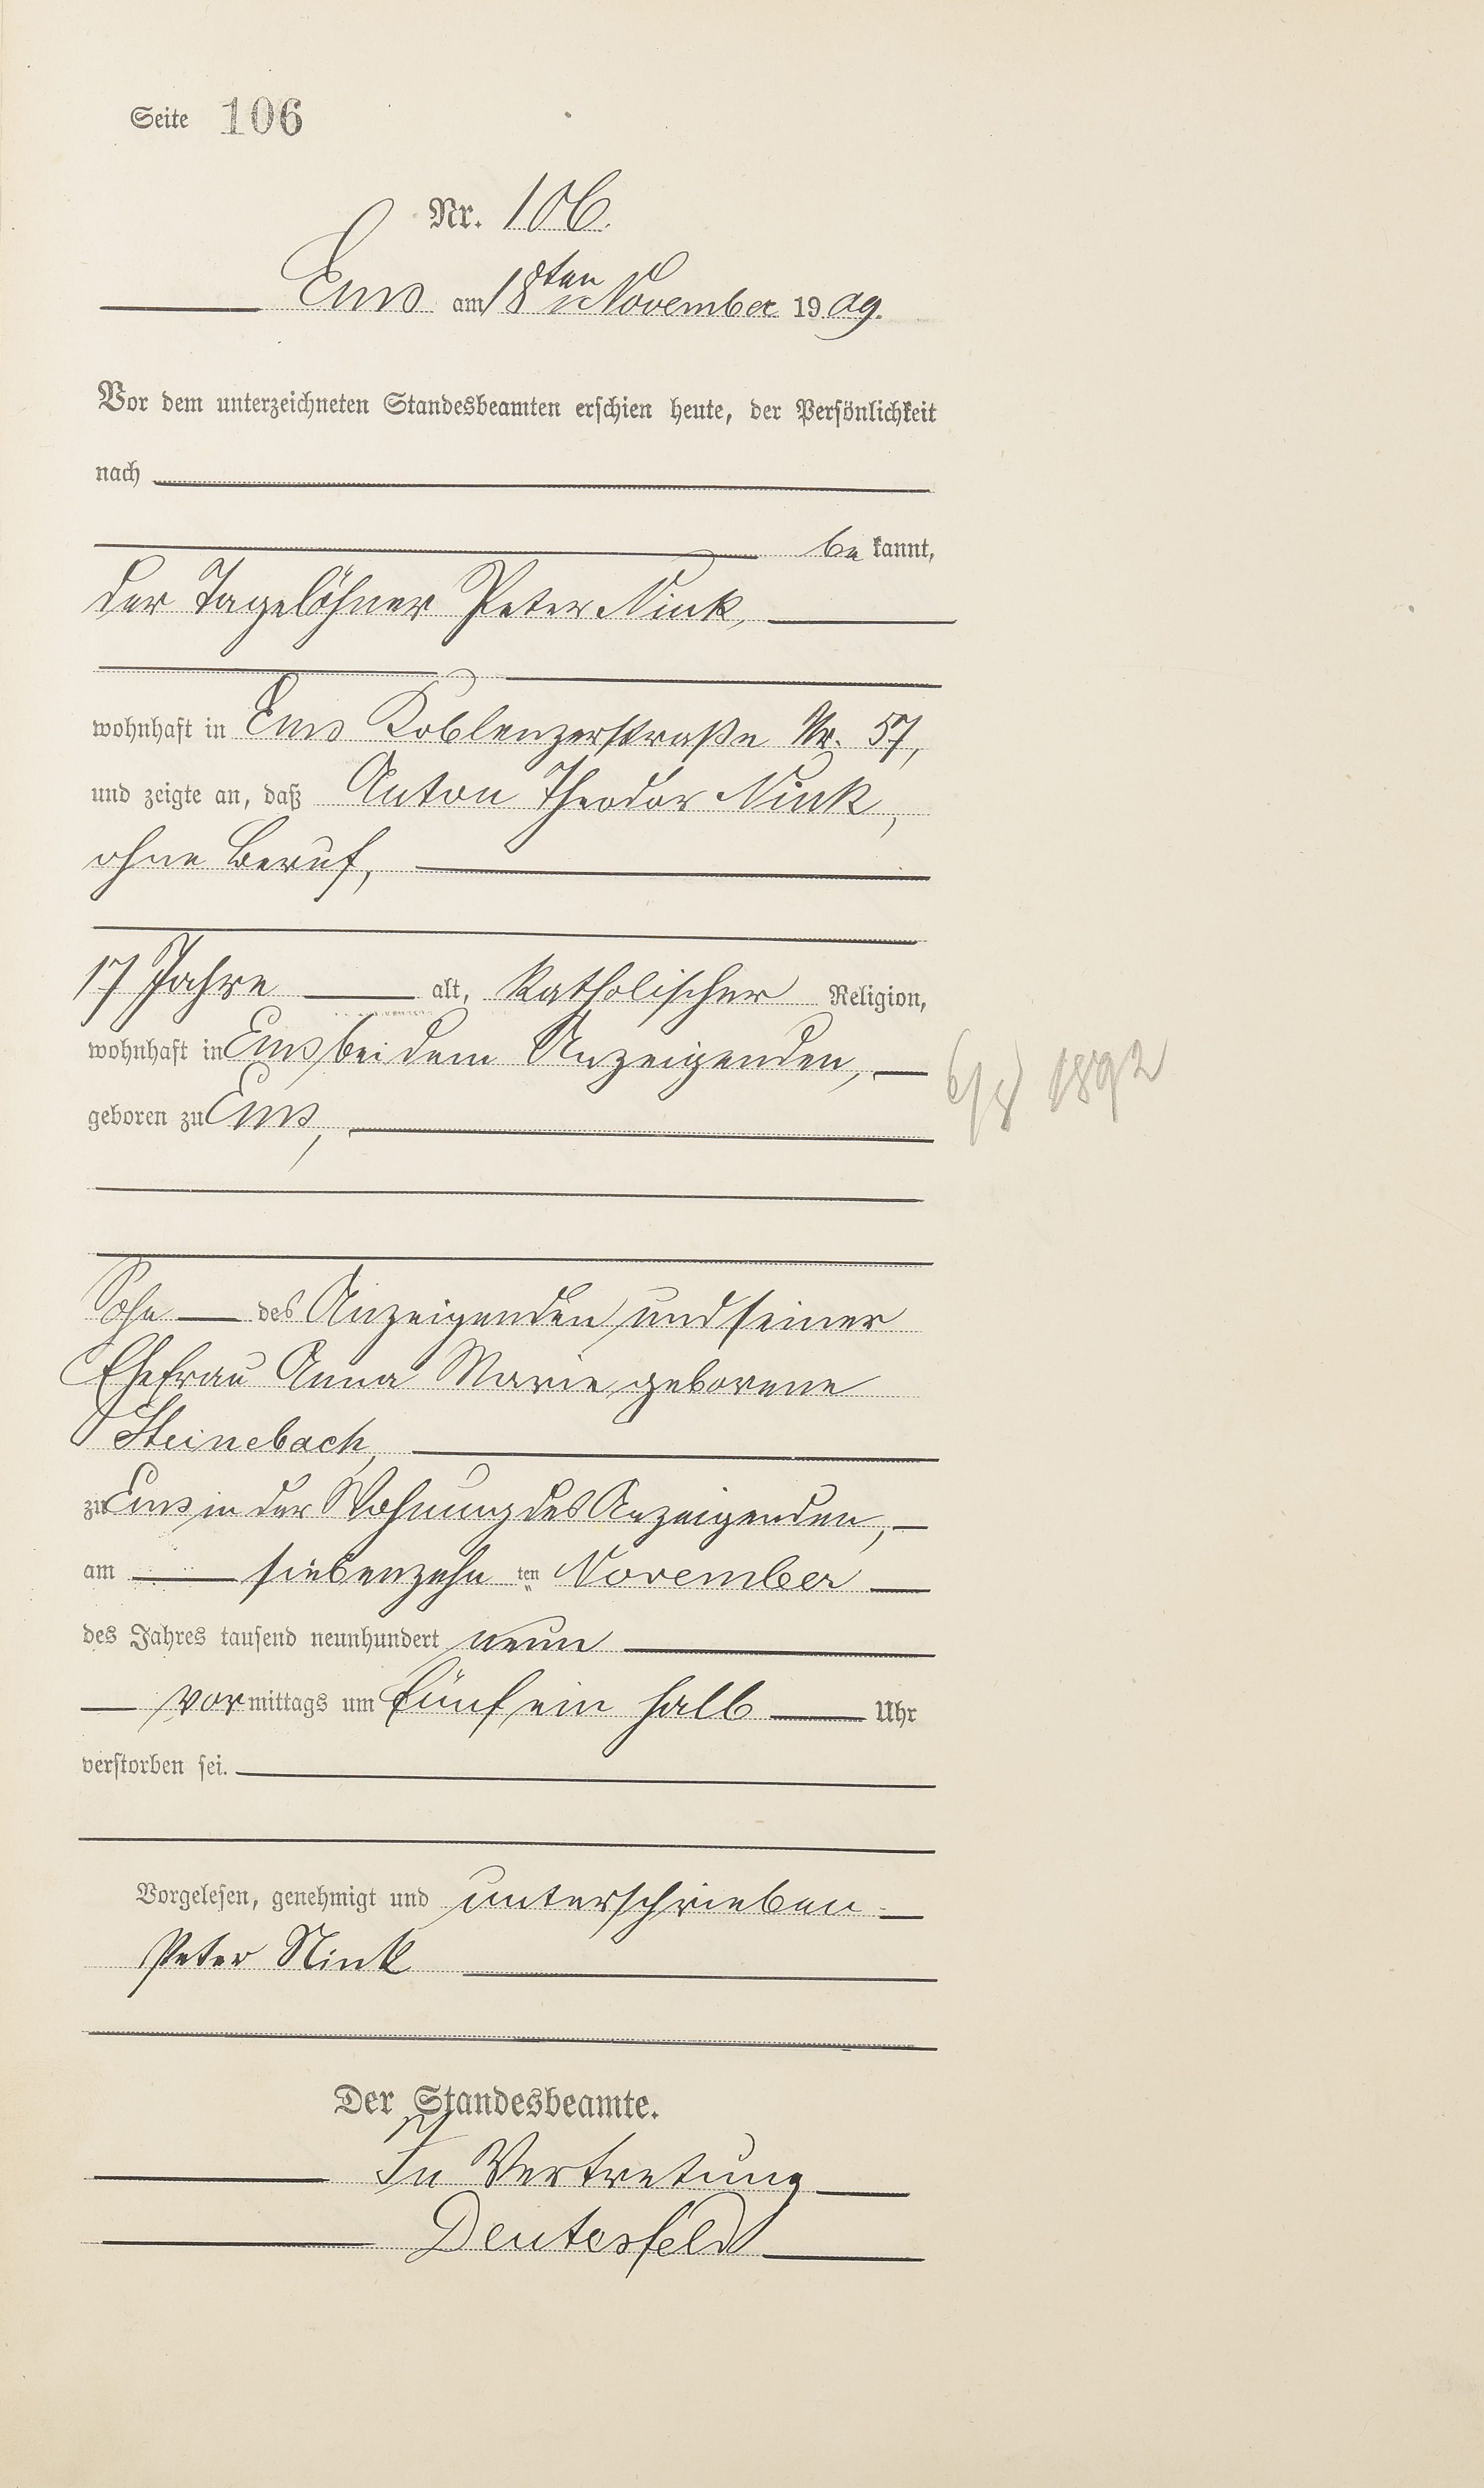 Seite 106
Nr. 106.
Ems am 18ten November 1909.
Vor dem unterzeichneten Standesbeamten erschien heute, der Persönlichkeit
nach
be kannt,
der Tagelöhner Peter Nink,
wohnhaft in Ems Koblenzerstraße Nr. 57,
und zeigte an, daß Anton Theodor Nink,
ohne Beruf,
17 Jahre alt, katholischer Religion,
wohnhaft in Ems bei dem Anzeigenden,
1892
geboren zu Ems,
Sohn des Anzeigenden und seiner
Ehefrau Anna Marie geborene
Steinebach,
zu Ems in der Wohnung des Anzeigenden,
am siebenzehn ten November
des Jahres tausend neunhundert neun
vormittags um fünf ein halb Uhr
verstorben sei.
Vorgelesen, genehmigt und unterschrieben
Peter Nink
Der Standesbeamte.
In Vertretung
Deutesfeld